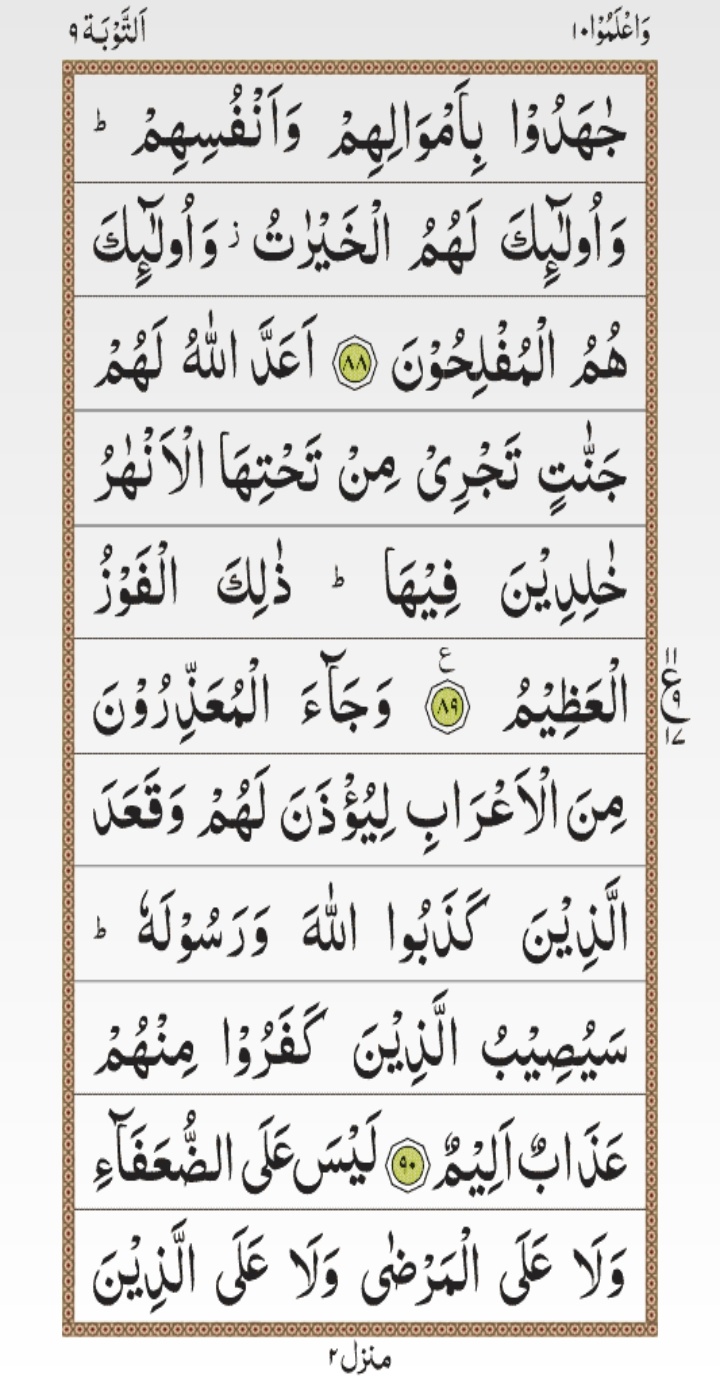 وَاعْلَمُوْا١٠ اَلتَّوْبَة ٩
جٰهَدُوْا بِاَمْوَالِهِمْ وَاَنْفُسِهِمْ ؕ
وَاُولٰٓئِكَ لَهُمُ الْخَيْرٰتُ ؗ وَاُولٰٓئِكَ
هُمُ الْمُفْلِحُوْنَ ۝٨٨ اَعَدَّ اللّٰهُ لَهُمْ
جَنّٰتٍ تَجْرِىْ مِنْ تَحْتِهَا الْاَنْهٰرُ
خٰلِدِيْنَ فِيْهَا ؕ ذٰلِكَ الْفَوْزُ
الْعَظِيْمُ ۝٨٩ ع وَجَآءَ الْمُعَذِّرُوْنَ
١١ ع ٩ ١٧
مِنَ الْاَعْرَابِ لِيُؤْذَنَ لَهُمْ وَقَعَدَ
الَّذِيْنَ كَذَبُوا اللّٰهَ وَرَسُوْلَهٗ ؕ
سَيُصِيْبُ الَّذِيْنَ كَفَرُوْا مِنْهُمْ
عَذَابٌ اَلِيْمٌ ۝٩٠ لَيْسَ عَلَى الضُّعَفَآءِ
وَلَا عَلَى الْمَرْضٰى وَلَا عَلَى الَّذِيْنَ
منزل٢